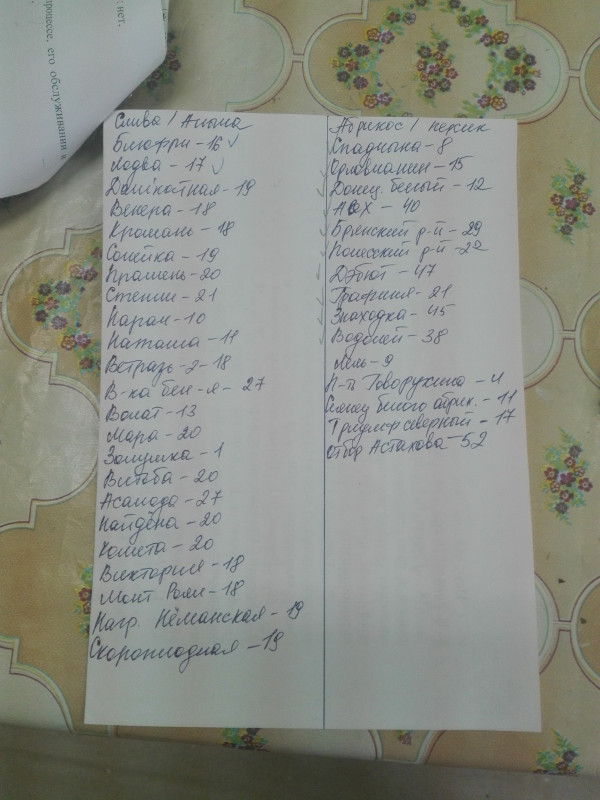 : нет.
процессе, его обслуживании и
Слива / Алыча
Блюфри - 16 ✓
Лодва - 17 ✓
Далікатная - 19
Венера - 18
Кромань - 18
Сонейка - 19
Прамень - 20
Стенли - 21
Ларан - 10
Наташа - 11
Ветразь - 2 - 18
В-ка бел-я - 27
Волат - 13
Мара - 20
Золушка - 1
Витьба - 20
Асалода - 27
Найдёна - 20
Комета - 20
Виктория - 18
Монт Роял - 18
Нагр. Нёманская - 19
Скороплодная - 19
Абрикос / персик
Спадчына - 8
Орловчанин - 15
Донец. белый - 12
- 40
Брянский р-й - 29
Полесский р-й - 22
Дэбют - 47
Графиня - 21
Знаходка - 45
Водолей - 38
Лель - 9
П-ть Говорухина - 4
Сеянец белого абрик. - 11
Триумф северный - 17
отбор Астахова - 52